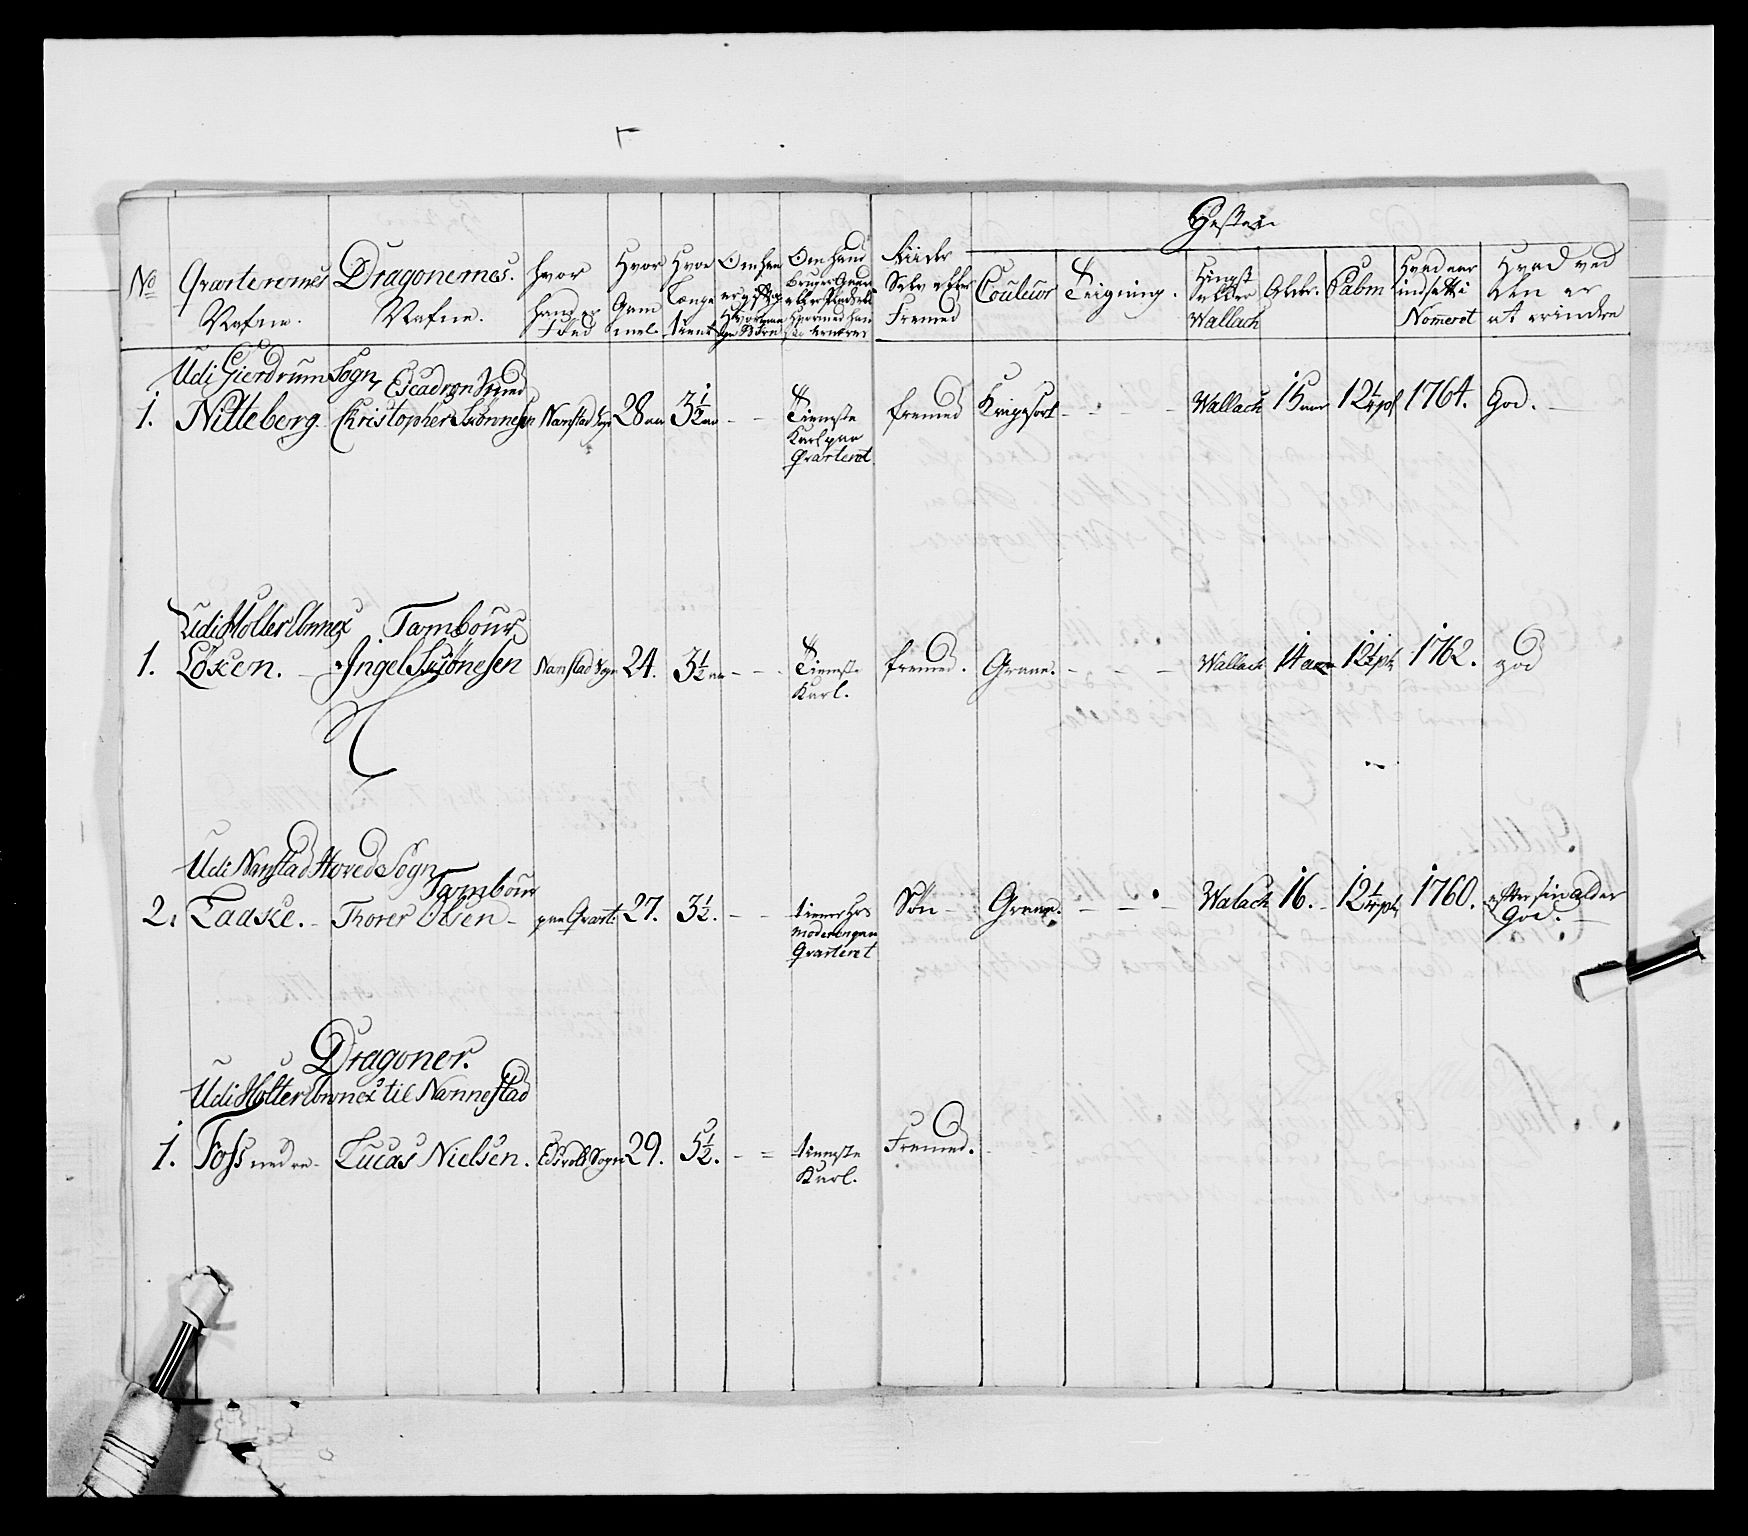 Hesten
No Qvarterernes Nafne. Dragonernes Nafne. Hvor hand er Fød Hvor Gammel Hvor Længe tient Om han er gift og Hvor mange Børn Om hand bruger Gaard eller Pladz eller Hvormed han sig ernærer Riider Selv eller Fremed Couleur Teigning. Hingst eller Wallach Alder. Palm Hvad aar indsatt i Nomeret Hvad ved den er at erindre
Udi Gierdrum Sogn Escadron Smed
1. Nitteberg. Christopher Siønnesen Nanstad Sogn 28 aar 3 1/2 aar - - Tienneste Karl paa Qvarteret fremed - - - Wallach 15 aar 12 1/4 pl 1764. God.
Udi Holter Annex Tambour
1. Løken. - Ingel Siønesen Nanstad Sogn 24. 3 1/2 aar - - Tienneste Karl. fremed. Graae. - - - Wallach 14 aar 12 1/4 pl 1762. god
Udi Nanstad Hoved Sogn Tambour
2. Laaske. - Thorer Olsen - paa Qvart. 27. 3 1/2. - - tiener hos moderen paa Qvarteret Søn - Graae. - - - Walach 16. - 12 1/4 pl 1760. efter sin alder God.
Dragoner.
Udi Holter Annex til Nannestad
1. Foss nedre - Lucas Nielsen. Edsvold Sogn 29. 5 1/2. - = tienneste Karl. Fremed.